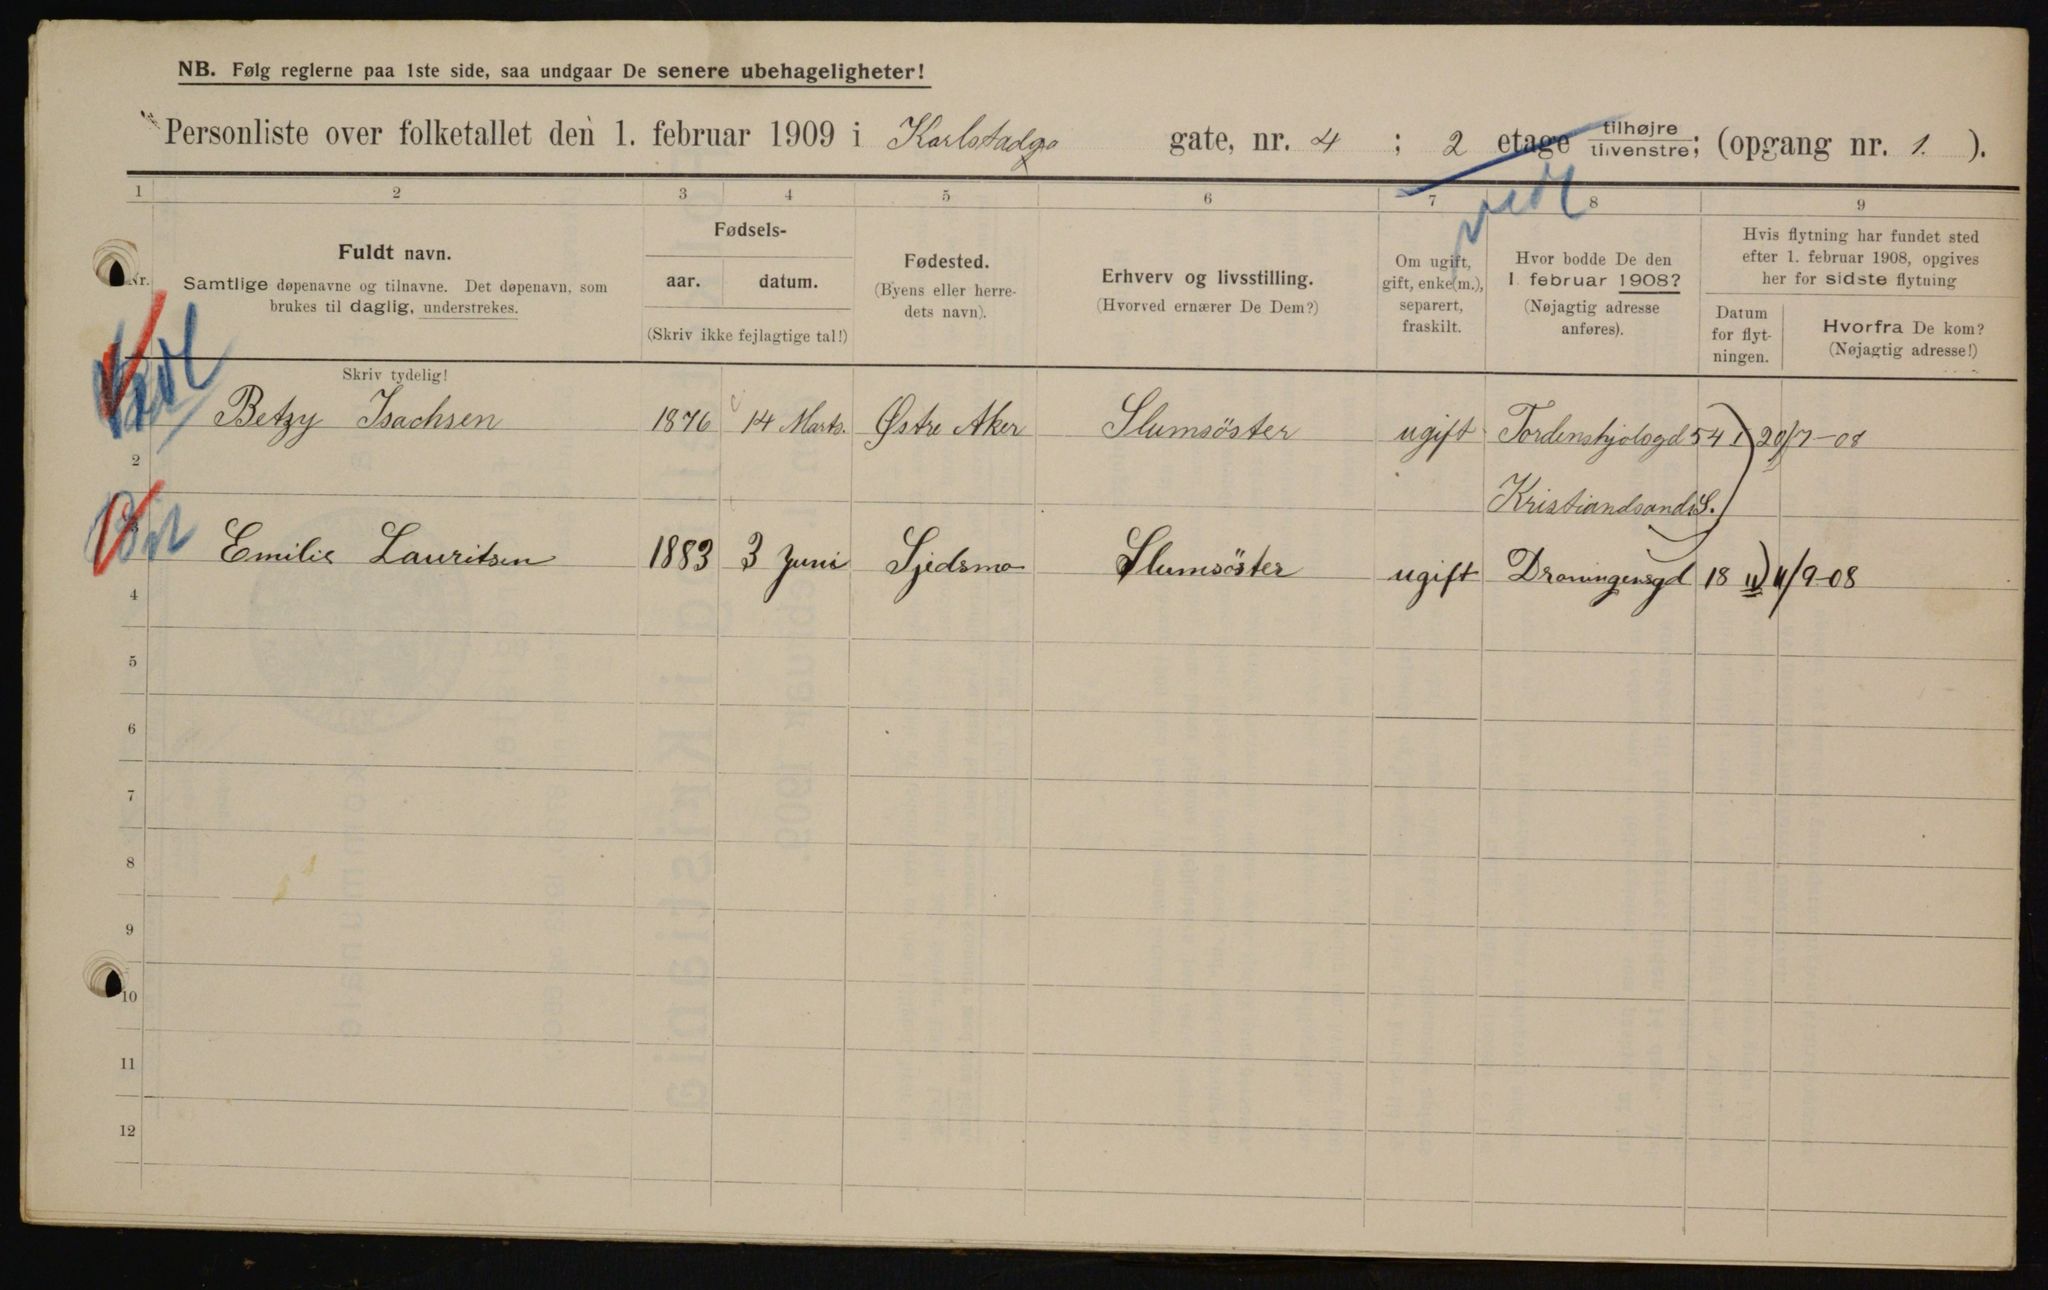 NB. Følg reglerne paa 1ste side, saa undgaar De senere ubehageligheter!
Personliste over folketallet den 1. februar 1909 i Karlstadga gate, nr. 4 ; 2 etage tilhøjre tilvenstre; (opgang nr. 1. ).
1 2 3 4 5 6 7 8 9
Nr.
Fuldt navn.
Samtlige døpenavne og tilnavne. Det døpenavn, som
brukes til daglig, understrekes.
Skriv tydelig!
Fødsels-
aar. datum.
(Skriv ikke fejlagtige tal!)
Fødested.
(Byens eller herre-
dets navn).
Erhverv og livsstilling.
(Hvorved ernærer De Dem?)
Om ugift,
gift, enke(m.),
separert,
fraskilt.
Hvor bodde De den
1. februar 1908?
(Nøjagtig adresse
anføres).
Hvis flytning har fundet sted
efter 1. februar 1908, opgives
her for sidste flytning
Datum
for flyt-
ningen.
Hvorfra De kom?
(Nøjagtig adresse!)
Betzy Isachsen 1876 14 Marts. Østre Aker Slumsöster ugift Tordenskjolsgd 54 I) 20/7-08
2
Kristiandsand S.)
3 Emilie Lauritsen 1883 3 Juni Sjedsmo Slumsöster ugift Droningensgd 18 II) 11/9-08
4
5
6
7
8
9
10
11
12